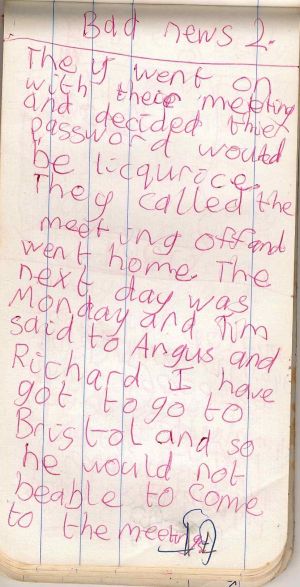 Bad news 2.
They went on
with their meeting
and decided thier
password would
be licqurice.
They called the
meeting off and
went home. The
next day was
Monday and Tim
said to Angus and
Richard I have
got to go to
Bristol and so
he would not
beable to come
to the meeting